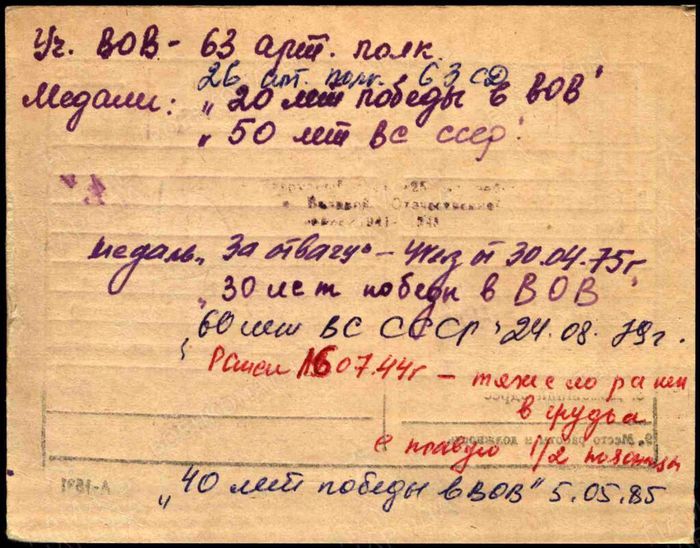 Уч. ВОВ - 63 арт. полк
26 ап. полк. 63 СД
Медали: „20 лет победы в ВОВ"
„50 лет ВС СССР"
25
в Великой Отечественной
войне 1941-1945
медаль „За отвагу" - Указ от 30.04.75г
„30 лет победы в ВОВ"
„60 лет ВС СССР" 24.08.79г.
Ранен 16 07.44г - тяжело ранен
в грудь
9. Место работы и должность
1/2
А-1591
„40 лет победы в ВОВ" 5.05.85